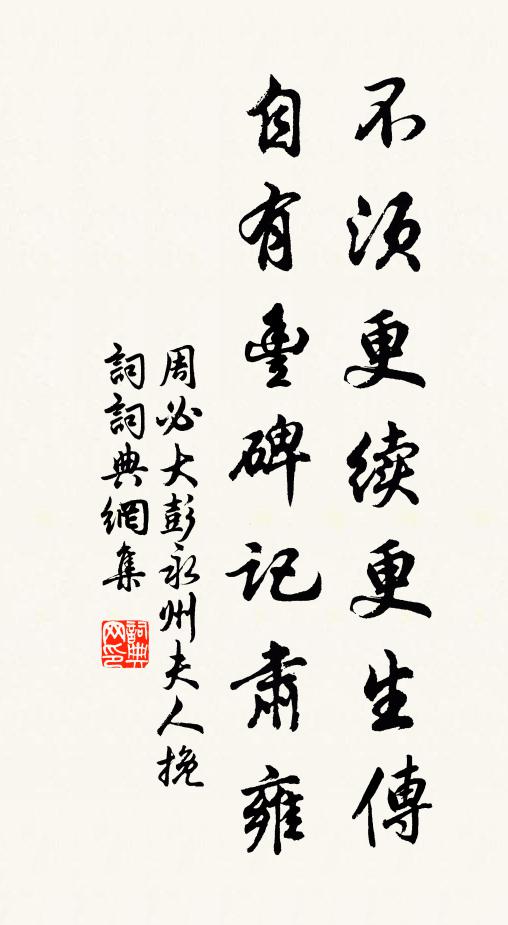 不须更续更生傳
自有豊碑記肅雍
周必大彭永州夫人挽
詞詞典網集
詞典网印